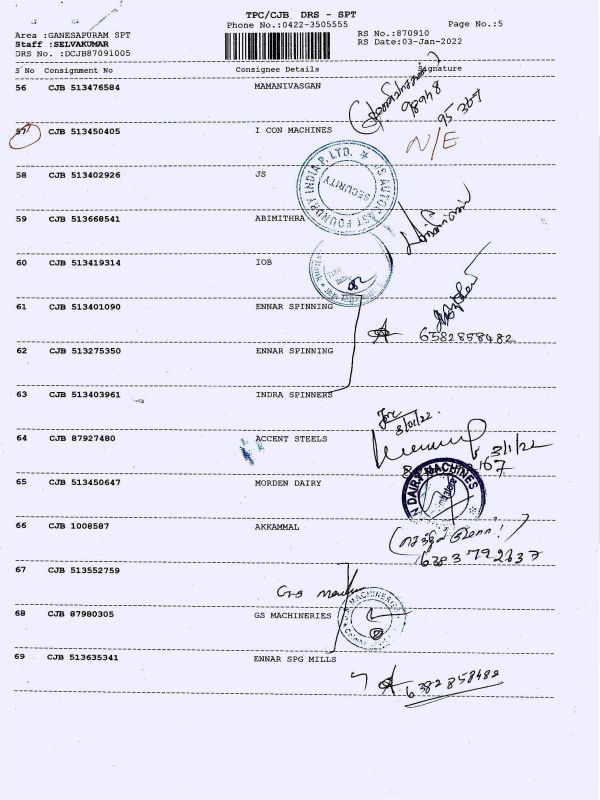 TPC/CJB DRS - SPT
Phone No.:0422-3505555 Page No.:5
Area :GANESAPURAM SPT RS No.:870910
Staff :SELVAKUMAR RS Date:03-Jan-2022
DRS No. :DCJB87091005
S No Consignment No Consignee Details Signature
56 CJB 513476584 MAMANIVASGAN
98948
95367
57 CJB 513450405 I CON MACHINES N/E
58 CJB 513402926 JS
JS AUTOCAST FOUNDRY INDIA P. LTD.
SECURITY
59 CJB 513668541 ABIMITHRA
60 CJB 513419314 IOB
61 CJB 513401090 ENNAR SPINNING
6382858482
62 CJB 513275350 ENNAR SPINNING
63 CJB 513403961 INDRA SPINNERS
3/01/22
64 CJB 87927480 ACCENT STEELS
3/1/22
65 CJB 513450647 MORDEN DAIRY
N DAIRY MACHINES
66 CJB 1008587 AKKAMMAL
6383792637
67 CJB 513552759
68 CJB 87980305 GS MACHINERIES
69 CJB 513635341 ENNAR SPG MILLS
6382858482